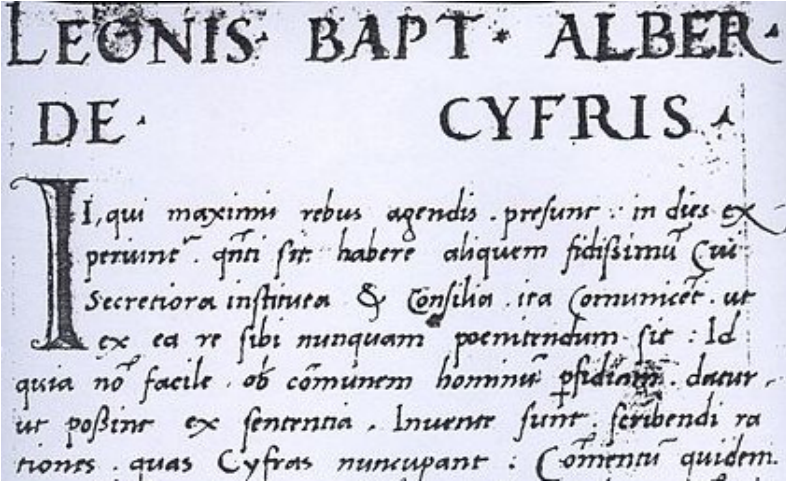 LEONIS · BAPT · ALBER ·
DE · CYFRIS ·
II, qui maximis rebus agendis . presunt : in dies ex
periunt̄ . qñti sit habere aliquem fidissimū Cui
Secretiora instituta & Consilia . ita Comunicēt . ut
ex ea re sibi nunquam poenitendum sit : Id
quia nō facile . ob cōmunem hominū ꝑfidiam . datur .
ut poßint ex sententia . Inuente sunt . scribendi ra
tiones . quas Cyfras nuncupant : Cōmentū quidem .